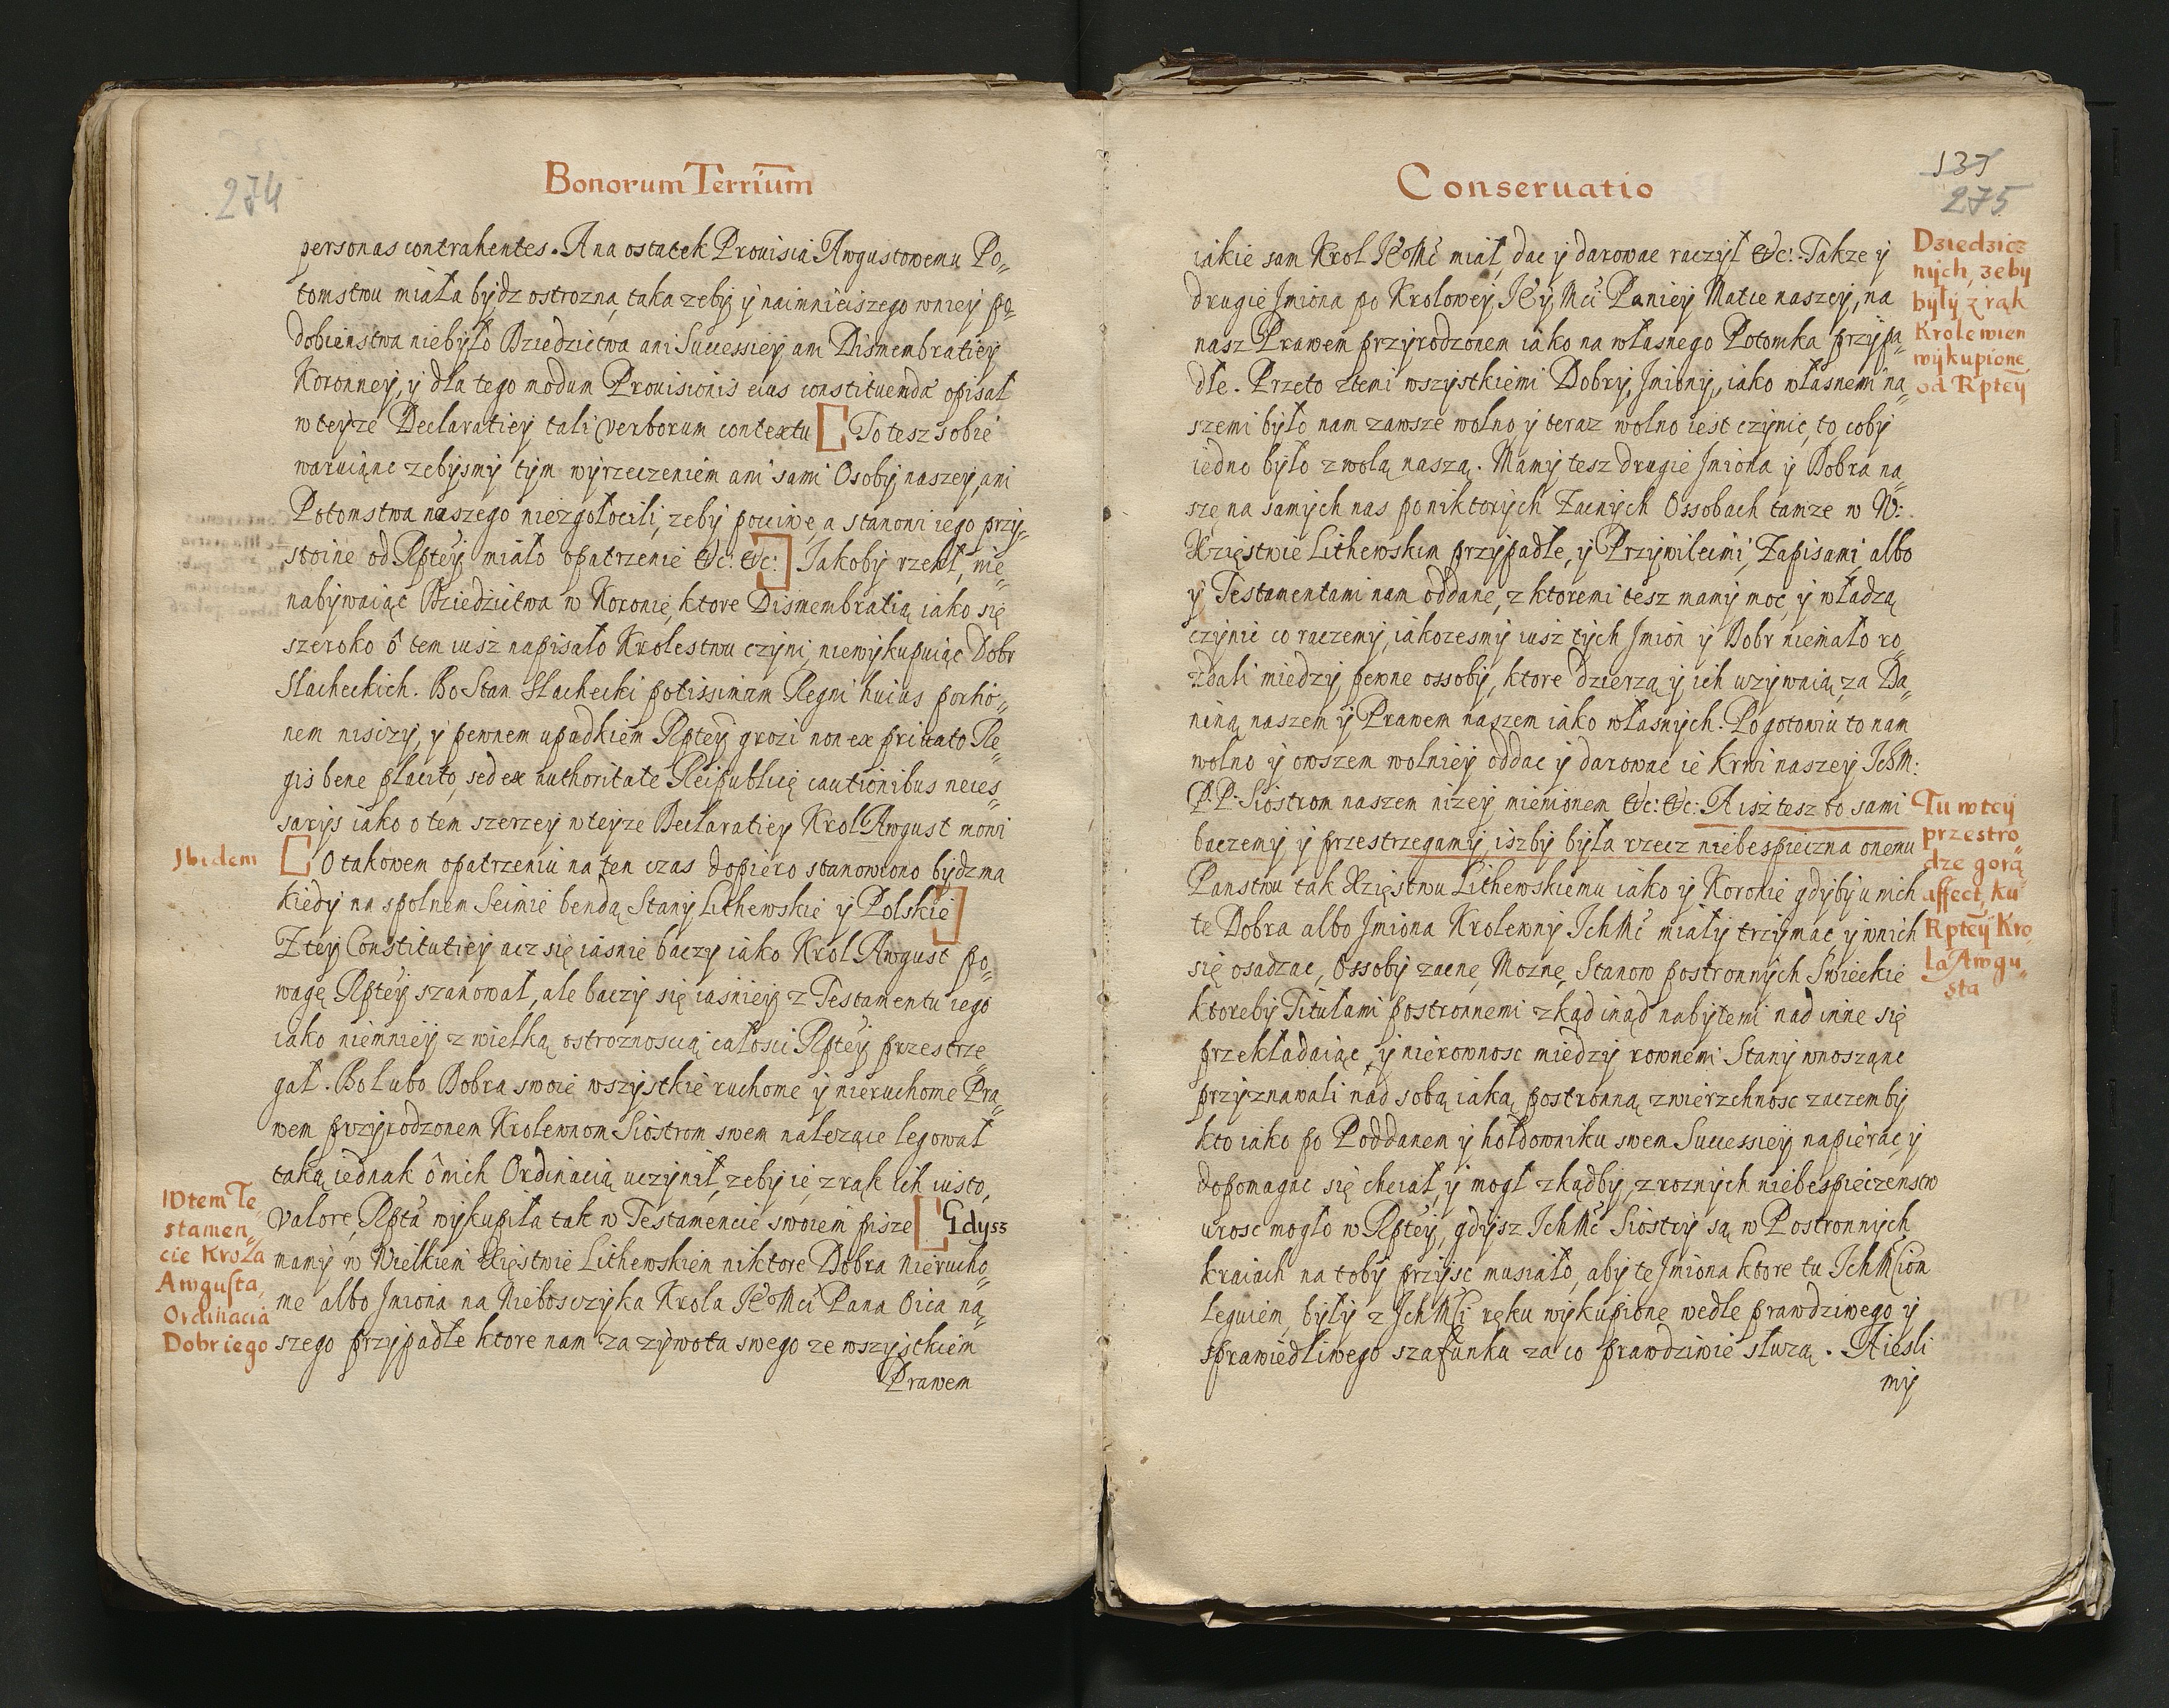 274
Bonorum Terrium̅
personas contrahentes. A na ostatek Prouisia Awgustowemu Po„
tomstwu miała bydz ostrozna, taka zeby y naimnieiszego wniey po„
dobienstwa niebyło Dziedzictwa ani Successiey ani Dismembratiey
Koronney, y dla tego modum Prouisionis eius constituendæ opisał
w teyze Declaratiey tali verborum contextu [ To tesz sobie
waruiąnc zebysmy tym wyrzeczeniem ani sami Osoby naszey, ani
Potomstwa naszego niezgołocili, zeby pocciwe, a stanowi iego przy„
stoine od Rptey miało opatrzenie &c: &c: ] Jakoby rzekł, nie„
nabywaiąc Dziedzictwa w Koronie, ktore Dismembratią iako się
szeroko o tem iusz napisało Krolestwu czyni, niewykupuiąc Dobr
Slacheckich. Bo Stan Slachecki potissimam Regni huius portio„
nem nisczy, y pewnem upadkiem Rptey grozi non ex priuato Re„
gis bene placito, sed ex authoritate Reipublicę cautionibus neces„
sarijs iako o tem szerzey w teyze Declaratiey Krol Awgust mowi
Jbidem
[ O takowem opatrzeniu na ten czas dopiero stanowiono bydz ma
kiedy na spolnem Seimie bendą Stany Lithewskie y Polskie ]
Z tey Constitutiey acz się iasnie baczy iako Krol Awgust po„
wagę Rptey szanował, ale baczy się iasniey z Testamentu iego
iako niemniey z wielką ostroznoscią całosci Rptey przestrze„
gał. Bo lubo Dobra swoie wszystkie ruchome y nieruchome Pra„
wem przyrodzonem Krolewnom Siostrom swem nalezące legował
taką iednak o nich Ordinacią uczynił, zeby ie z rąk ich iusto,
valore, Rpta wykupiła tak w Testamencie swoiem pisze [ Gdysz
mamy w Wielkiem Xięstwie Lithewskiem niktore Dobra nierucho„
me albo Jmiona na Nieboszczyka Krola Je̊ Mci Pana Oica na„
szego przypadłe ktore nam za zywota swego ze wszystkiem
Prawem
W tem Te„
stamen„
cie Krola
Awgusta,
Ordinacia
Dobr iego
137
275
Conseruatio
iakie sam Krol Je̊ Mć miał, dac y darowac raczył &c: Takze y
drugie Jmiona po Krolowey Je̊y Mci Paniey Matce naszey, na
nasz Prawem przyrodzonem iako na własnego Potomka przypa„
dłe. Przeto ztemi wszystkiemi Dobry, Jmiony, iako własnemi na„
szemi było nam zawsze wolno y teraz wolno iest czynic, to coby
iedno było z wolą naszą. Mamy tesz drugie Jmiona y Dobra na„
szę na samych nas po niktorych Zacnych Ossobach tamze w W:
Xzięstwie Lithewskim przypadłe, y Przywileimi, Zapisami, albo
y Testamentami nam oddane, z ktoremi tesz mamy moc y władzą
czynic co raczemy, iakozesmy iusz tych Jmion y Dobr niemało ro„
zdali miedzy pewne ossoby, ktore dzierzą y ich uzywaią za Da„
niną naszem y Prawem naszem iako własnych. Pogotowiu to nam
wolno y owszem wolniey oddac y darowac ie krwi naszey IchM:
P.P. Siostrom naszem nizey mienionem &c: &c: A isz tesz to sami
baczemy y przestrzegamy, iszby była rzecz niebespieczna onemu
Panstwu tak Xzięstwu Lithewskiemu iako y Koronie gdyby u nich
te Dobra albo Jmiona Krolewny IchMć miały trzymac, y w nich
się osadzac, Ossoby zacnę, Moznę, Stanow postronnych Swieckie
ktoreby Titułami postronnemi zkąd inąd nabytemi nad inne się
przekładaiąc, y nierownosc miedzy rownemi Stany wnosząnc
przyznawali nad sobą iaką postronną zwierzchnosc zaczemby
kto iako po Poddanem y hołdowniku swem Successiey napierac y
dopomagac się chciał, y mogł zkądby, z roznych niebespieczenstw
urosc mogło w Rptey, gdysz IchMć Siostry są w Postronnych
kraiach na toby przyisc musiało, aby te Jmiona ktore tu IchMciom
leguiem, były z IchMci ręku wykupione wedle prawdziwego y
sprawiedliwego szafunku za co prawdziwie stuzą. A iesli
my
Dziedzicz„
nych, zeby
były z rąk
Krolewien
wykupione,
od Rptey
Tu w tey
przestro„
dze gorą
affect, ku
Rptey Kro„
la Awgu„
sta